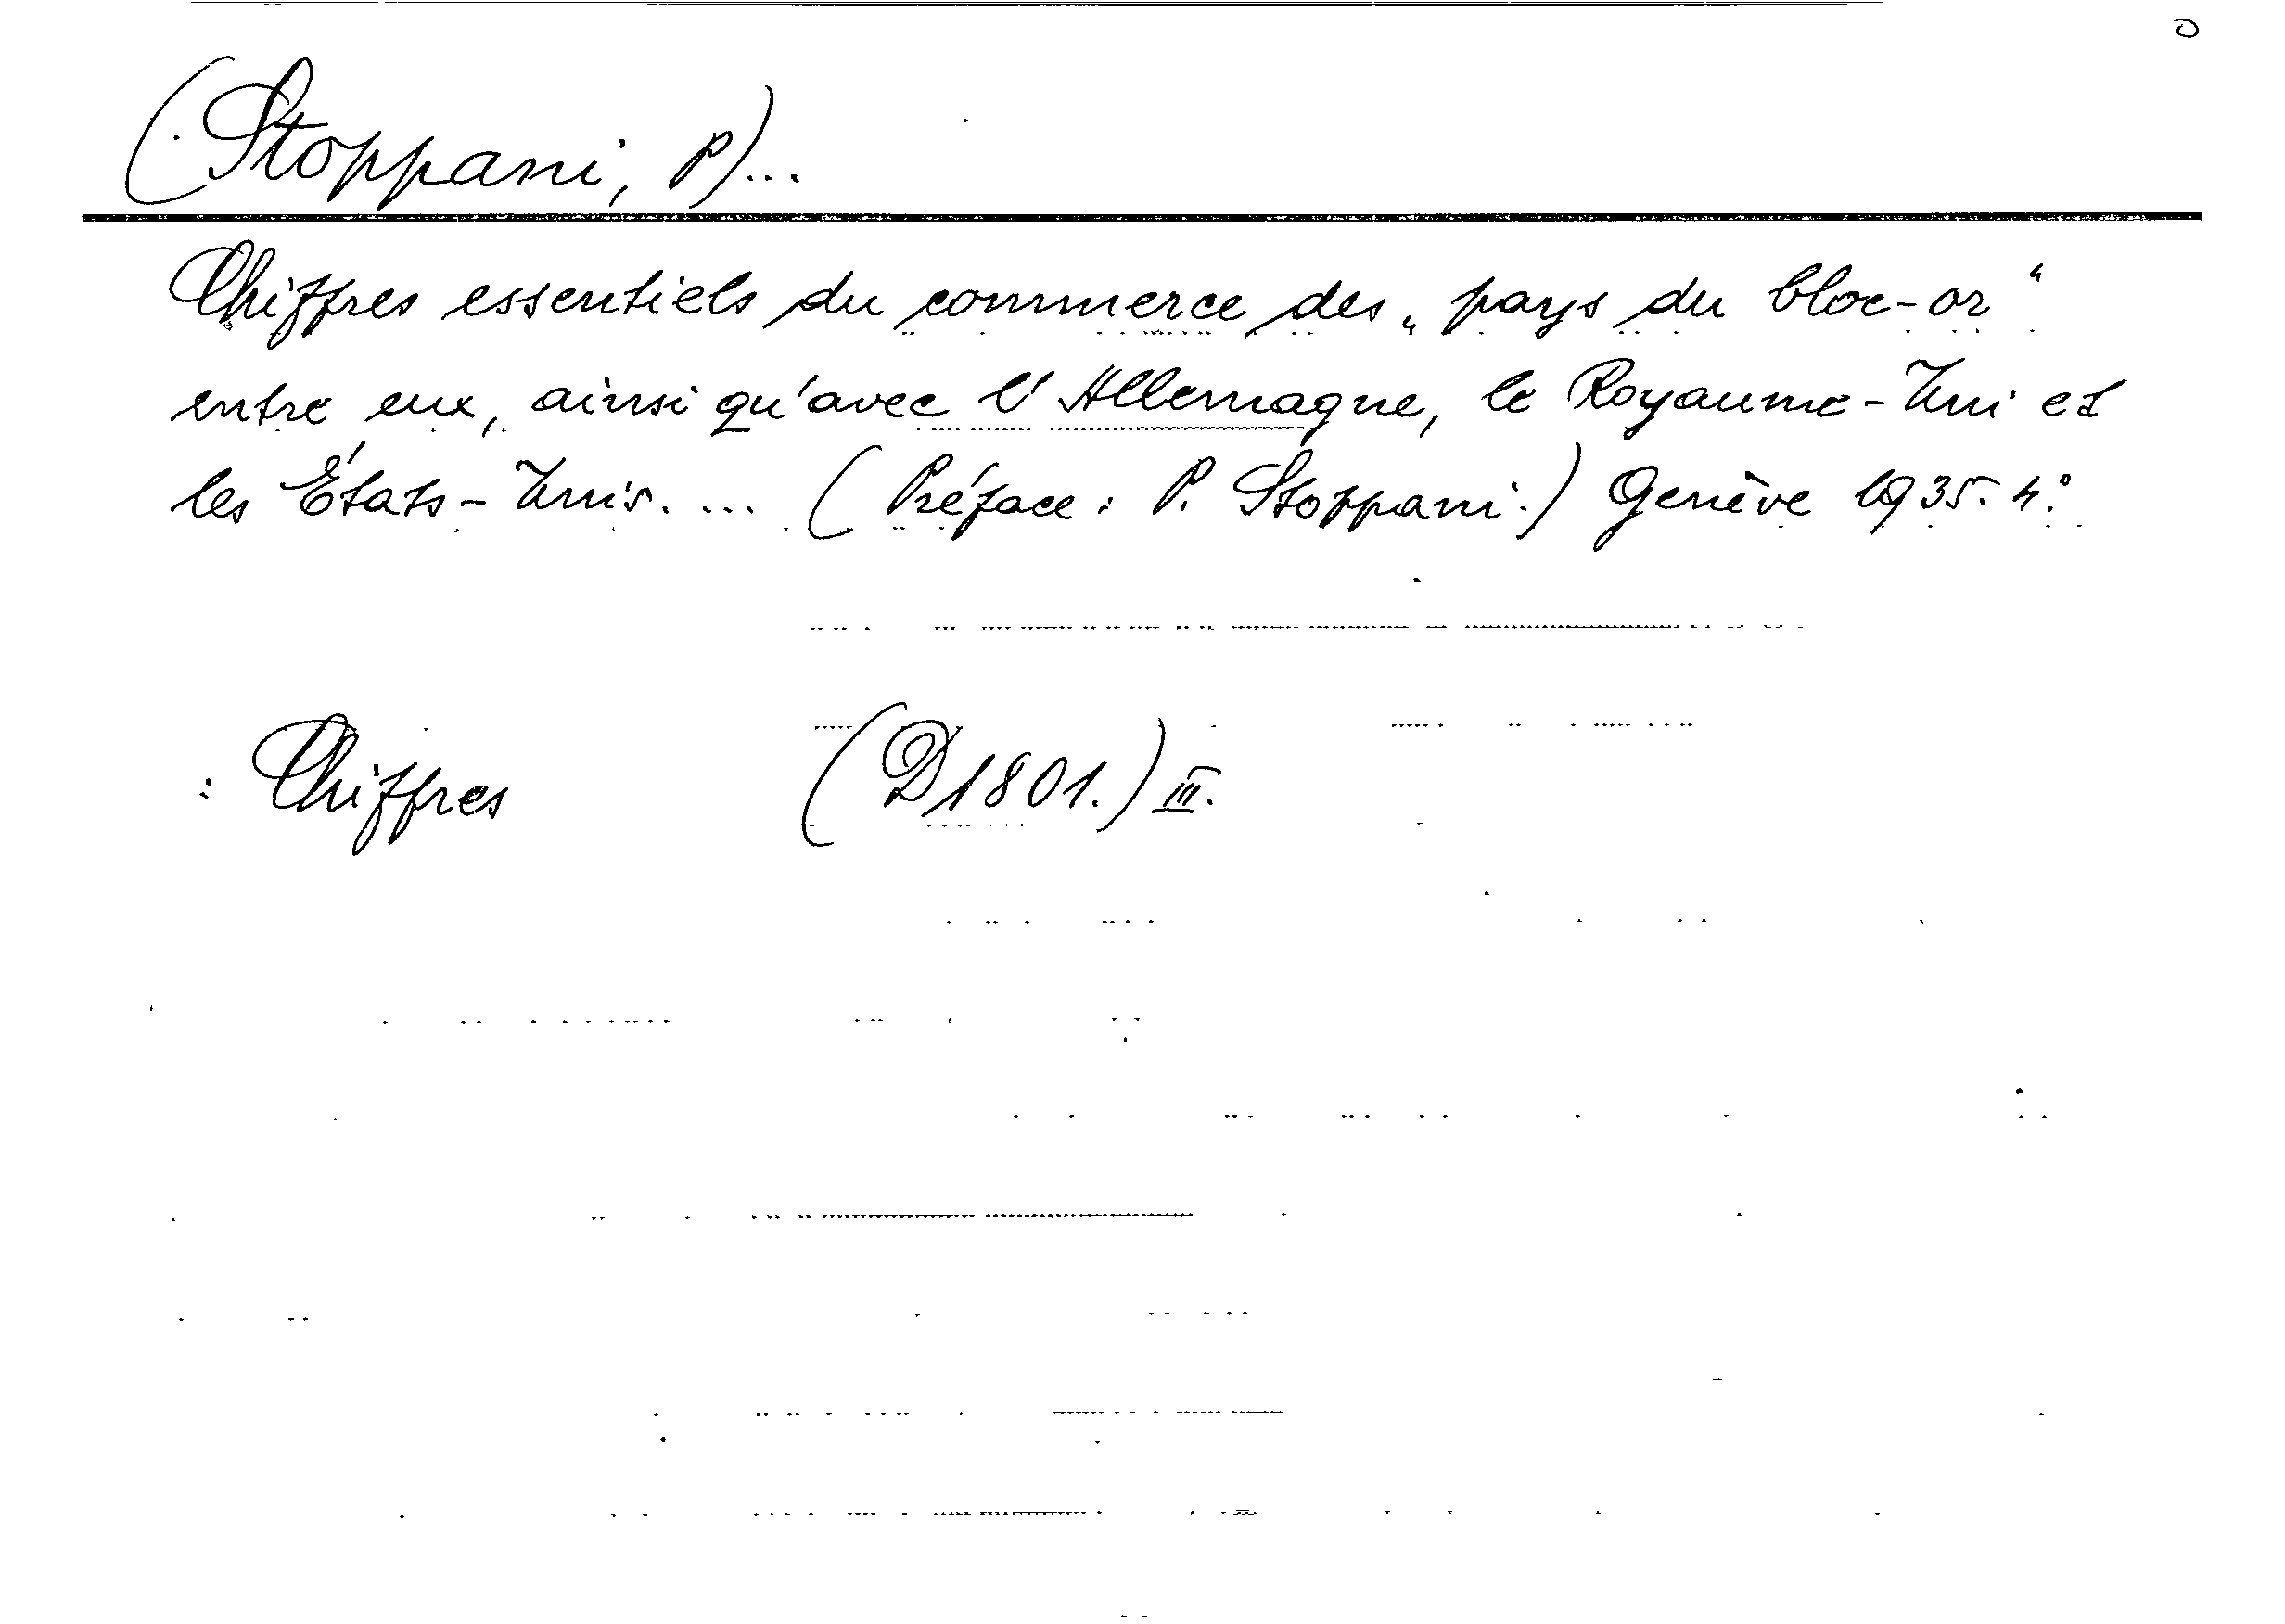 (Stoppani, P)...
Chiffres essentiels du commerce des „pays du bloc-or“
entre eux, ainsi qu'avec l'Allemagne, le Royaume-Uni et
les États-Unis. ... (Préface: P. Stoppani.) Genève 1935. 4°.
: Chiffres (D1801.) III.